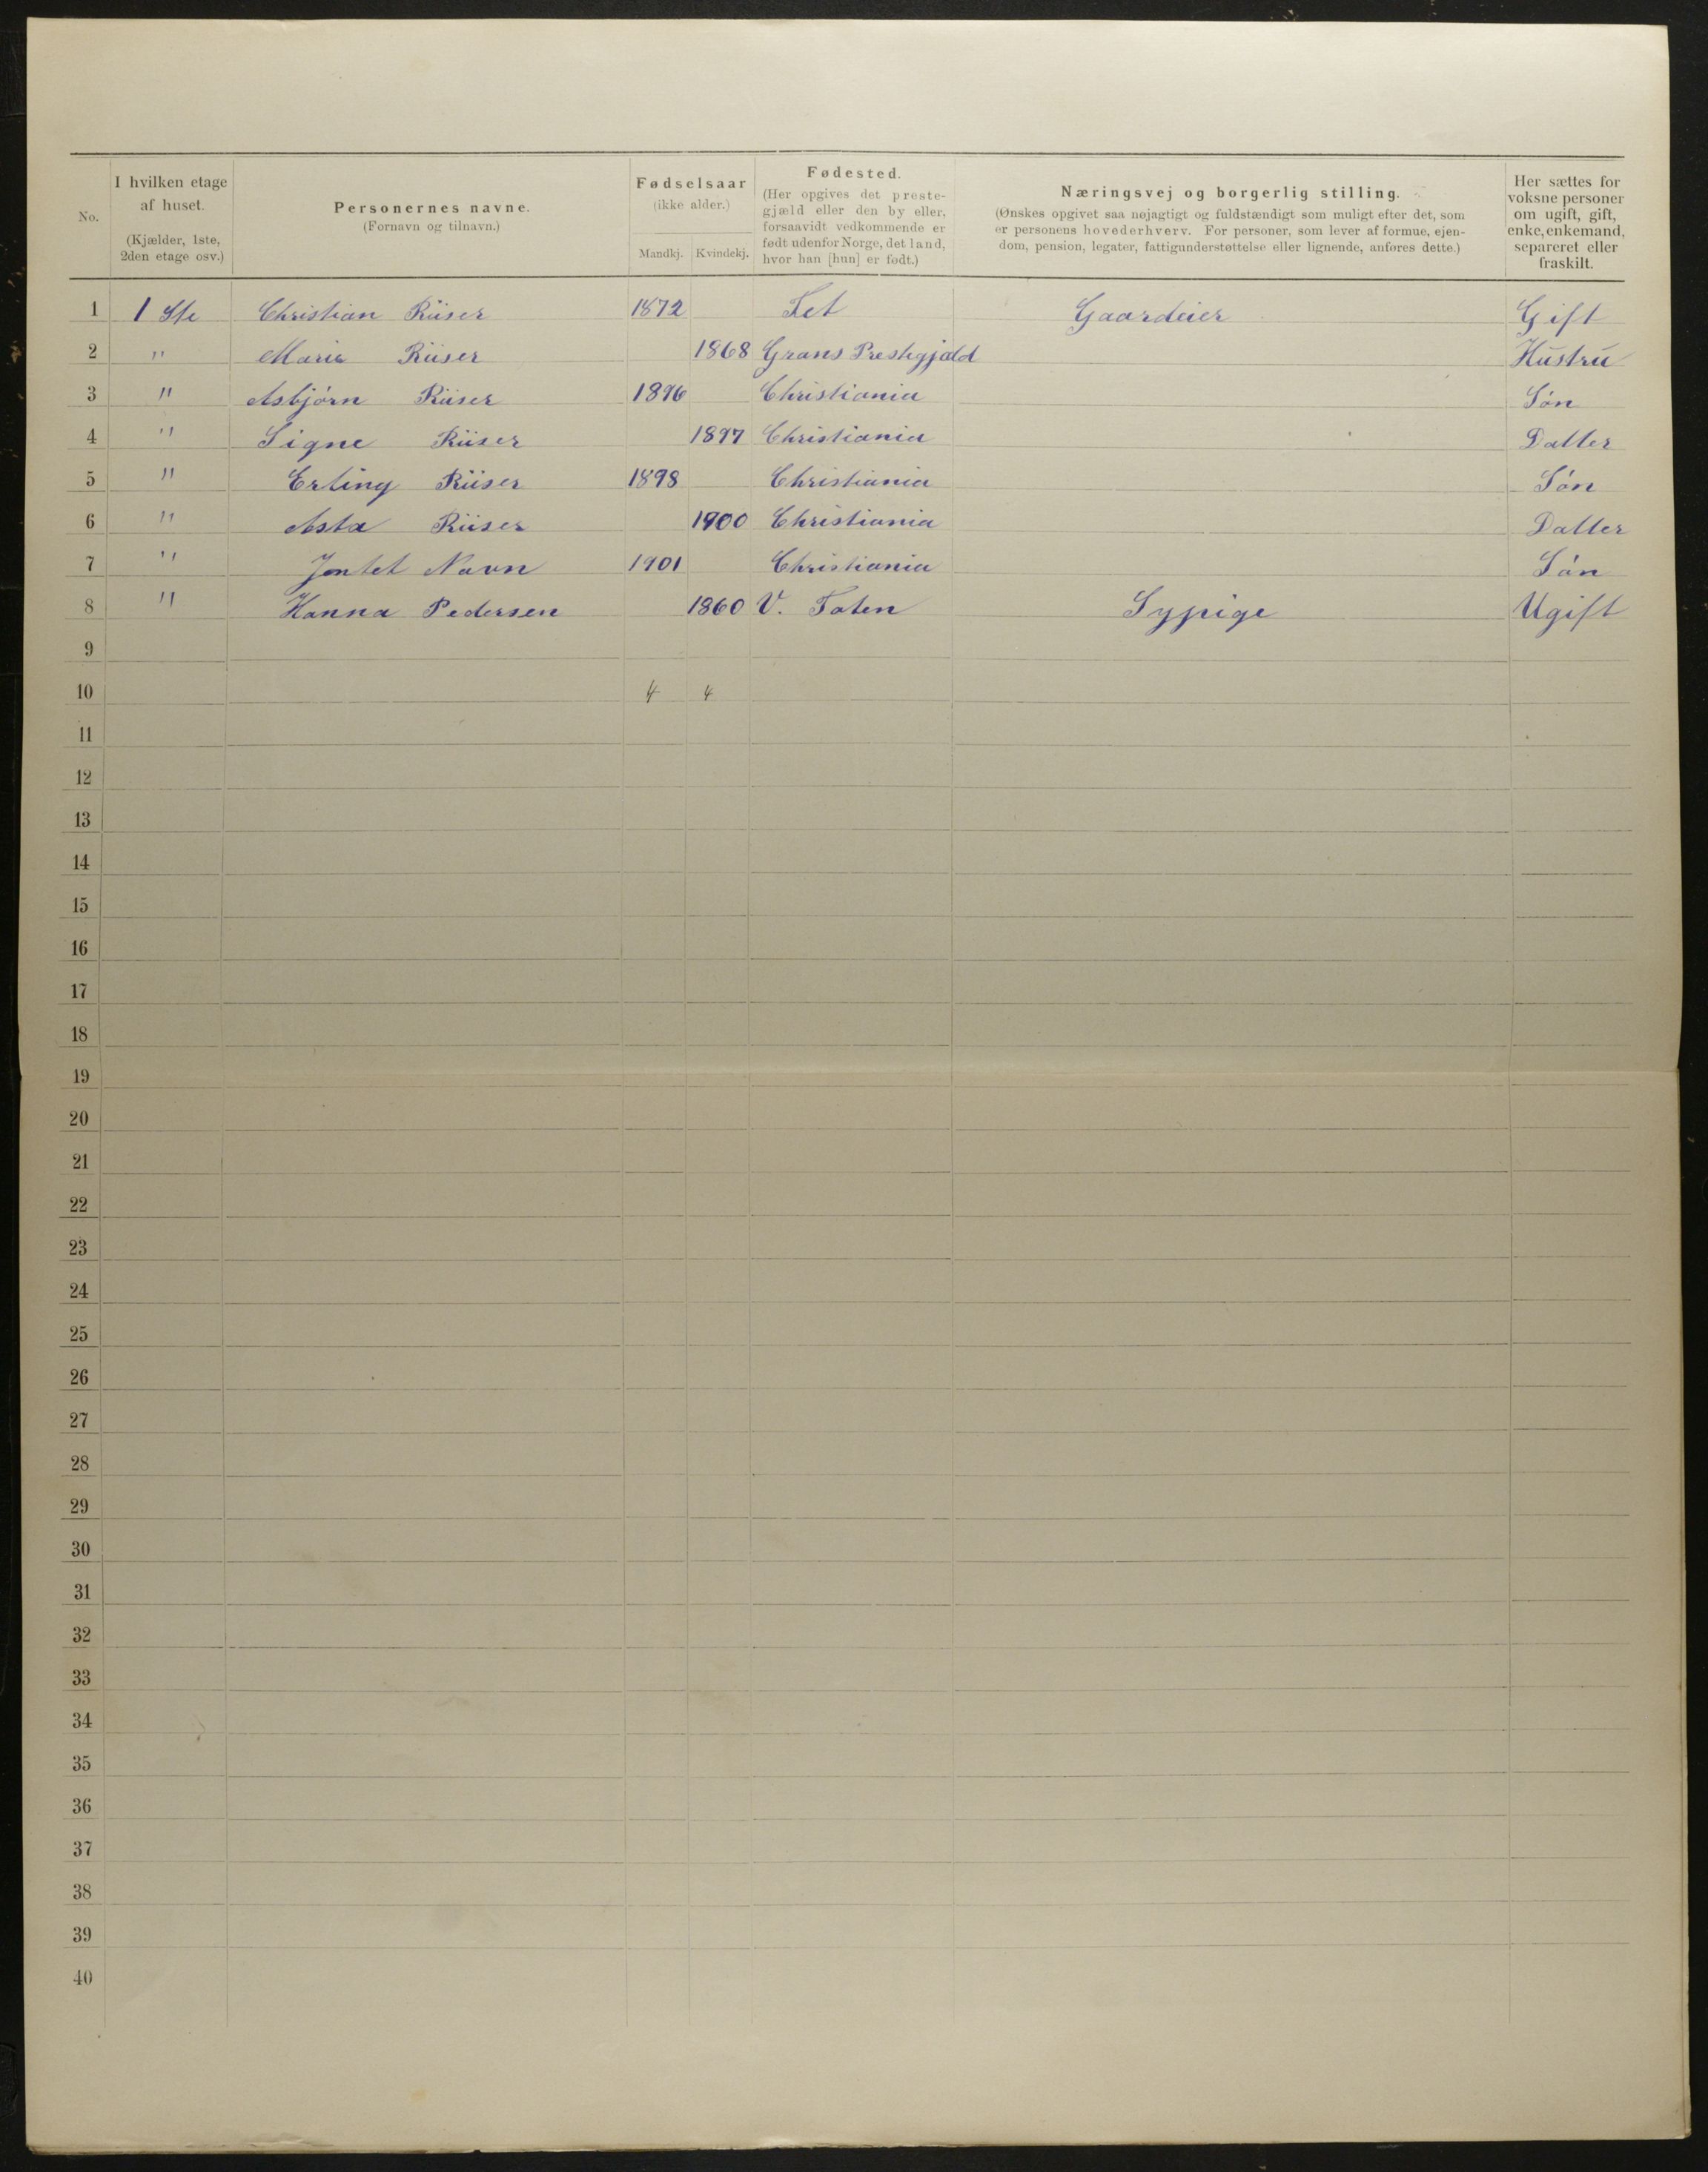 No.
I hvilken etage af huset.
(Kjælder, 1ste, 2den etage osv.)
Personernes navne.
(Fornavn og tilnavn.)
Fødselsaar
(ikke alder.)
Mandkj. Kvindekj.
Fødested.
(Her opgives det preste-
gjæld eller den by eller,
forsaavidt vedkommende er
født udenfor Norge, det land,
hvor han [hun] er født.)
Næringsvej og borgerlig stilling.
(Ønskes opgivet saa nøjagtigt og fuldstændigt som muligt efter det, som
er personens hovederhverv. For personer, som lever af formue, ejen-
dom, pension, legater, fattigunderstøttelse eller lignende, anføres dette.)
Her sættes for
voksne personer
om ugift, gift,
enke, enkemand,
separeret eller
fraskilt.
1 1 Ste Christian Riiser 1872 Fet Gaardeier Gift
2 " Marie Riiser 1868 Grans Prestegjæld Hustru
3 " Asbjörn Riiser 1896 Christiania Sön
4 " Signe Riiser 1897 Christiania Datter
5 " Erling Riiser 1898 Christiania Sön
6 " Asta Riiser 1900 Christiania Datter
7 " Intet Navn 1901 Christiania Sön
8 " Hanna Pedersen 1860 V. Toten Sypige Ugift
9
10 4 4
11
12
13
14
15
16
17
18
19
20
21
22
23
24
25
26
27
28
29
30
31
32
33
34
35
36
37
38
39
40